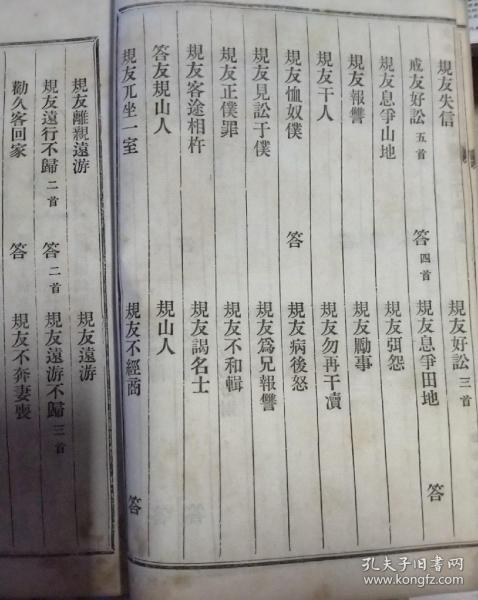 規友失信 規友好訟三首
戒友好訟五首 答四首 規友息爭田地 答
規友息爭山地 規友弭怨
規友報讐 規友勵事
規友干人 規友勿再干瀆
規友恤奴僕 答 規友病後怒
規友見訟于僕 規友爲兄報讐
規友正僕罪 規友不和輯
規友客途相杵 規友謁名士
答友規山人 規山人
規友兀坐一室 規友不經商 答
規友離親遠游 規友遠游
規友遠行不歸二首 答二首 規友遠游不歸三首
勸久客回家 答 規友不奔妻喪
孔夫子旧书网
www.kongfz.com